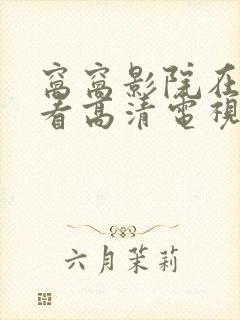 窝窝影院在
看高清電視
六月茉莉